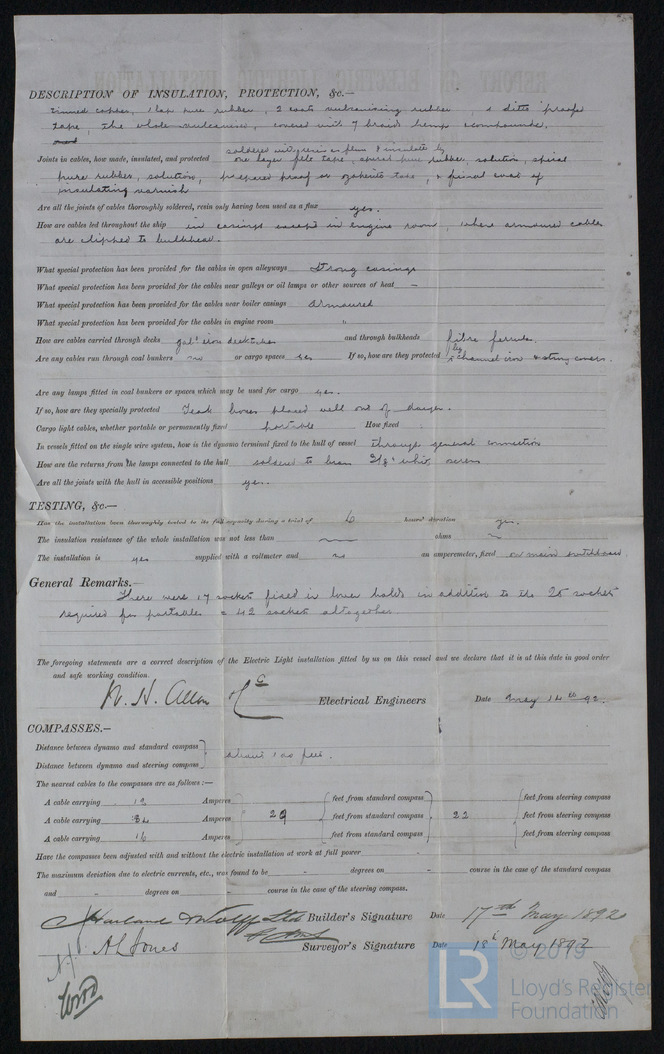 DESCRIPTION OF INSULATION, PROTECTION, &c.—
tinned copper, 1 lap pure rubber, 2 coats vulcanising rubber, & ditto proofed
tape, the whole vulcanised, covered with 7 braid hemp & compounded.
soldered with resin as flux & insulated by
Joints in cables, how made, insulated, and protected one layer felt tape, spiral pure rubber, solution, spiral
pure rubber, solution, prepared proof or ozokerite tape, & final coat of
insulating varnish
Are all the joints of cables thoroughly soldered, resin only having been used as a flux yes.
How are cables led throughout the ship in casings except in engine room, where armoured cables
are clipped to bulkhead.
What special protection has been provided for the cables in open alleyways Strong casings
What special protection has been provided for the cables near galleys or oil lamps or other sources of heat —
What special protection has been provided for the cables near boiler casings Armoured
What special protection has been provided for the cables in engine room "
How are cables carried through decks galvd iron deck tubes and through bulkheads fibre ferrules
Are any cables run through coal bunkers no or cargo spaces yes If so, how are they protected by channel iron & strong covers.
Are any lamps fitted in coal bunkers or spaces which may be used for cargo yes.
If so, how are they specially protected Teak boxes placed well out of danger.
Cargo light cables, whether portable or permanently fixed portable How fixed
In vessels fitted on the single wire system, how is the dynamo terminal fixed to the hull of vessel through general connection
How are the returns from the lamps connected to the hull soldered to brass 3/8" whit. screws
Are all the joints with the hull in accessible positions yes.
TESTING, &c.—
Has the installation been thoroughly tested to its full capacity during a trial of 6 hours' duration yes.
The insulation resistance of the whole installation was not less than — ohms —
The installation is yes supplied with a voltmeter and no an amperemeter, fixed on main switchboard
General Remarks.—
There were 17 sockets fixed in lower holds in addition to the 25 sockets
required for portables = 42 sockets altogether.
The foregoing statements are a correct description of the Electric Light installation fitted by us on this vessel and we declare that it is at this date in good order
and safe working condition.
W. H. Allen & Co Electrical Engineers Date May 14th 92.
COMPASSES.—
Distance between dynamo and standard compass
about 100 feet.
Distance between dynamo and steering compass
The nearest cables to the compasses are as follows:—
A cable carrying 12 Amperes feet from standard compass feet from steering compass
A cable carrying 34 Amperes 29 feet from standard compass 22 feet from steering compass
A cable carrying 16 Amperes feet from standard compass feet from steering compass
Have the compasses been adjusted with and without the electric installation at work at full power
The maximum deviation due to electric currents, etc., was found to be - degrees on - course in the case of the standard compass
and - degrees on - course in the case of the steering compass.
Harland & Wolff Ltd Builder's Signature Date 17th May 1892
A L Jones Surveyor's Signature Date 18th May 1892
© 2019
LR Lloyd's Register
Foundation